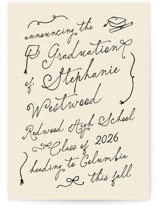 announcing the
Graduation
of Stephanie
Westwood
Redwood High School
Class of 2026
heading to Columbia
this fall